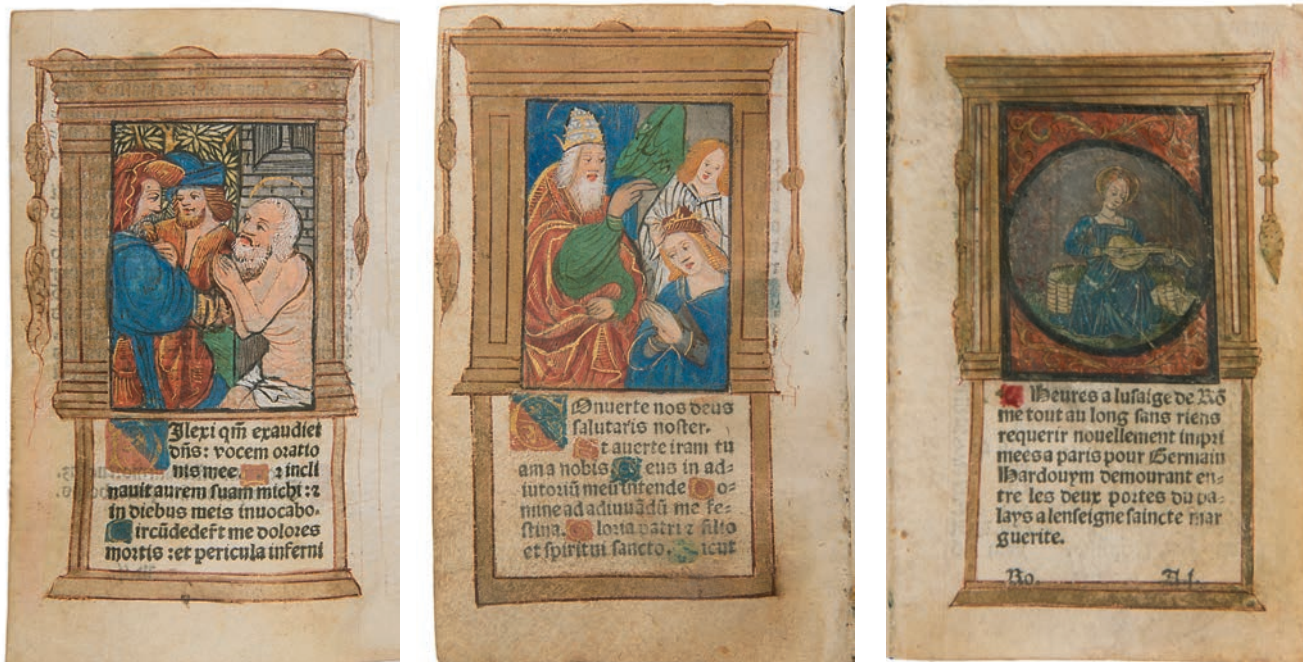 Ilexi qm̄ exaudiet
dn̄s: vocem oratio
nis mee. ꝛ incli
nauit aurem suam michi: ꝛ
in diebus meis inuocabo.
ircūdederūt me dolores
mortis: et pericula inferni
Onuerte nos deus
salutaris noster.
t auerte iram tu
am a nobis. eus in ad-
iutoriū meū intende o-
mine ad adiuuādū me fe-
stina. loria patri ꝛ filio
et spiritui sancto. icut
Heures a lusaige de Rō
me tout au long sans riens
requerir nouellement impri
mees a paris pour Germain
Hardouyn demourant en-
tre les deux portes du pa-
lays a lenseigne saincte mar
guerite.
Ro. A.i.